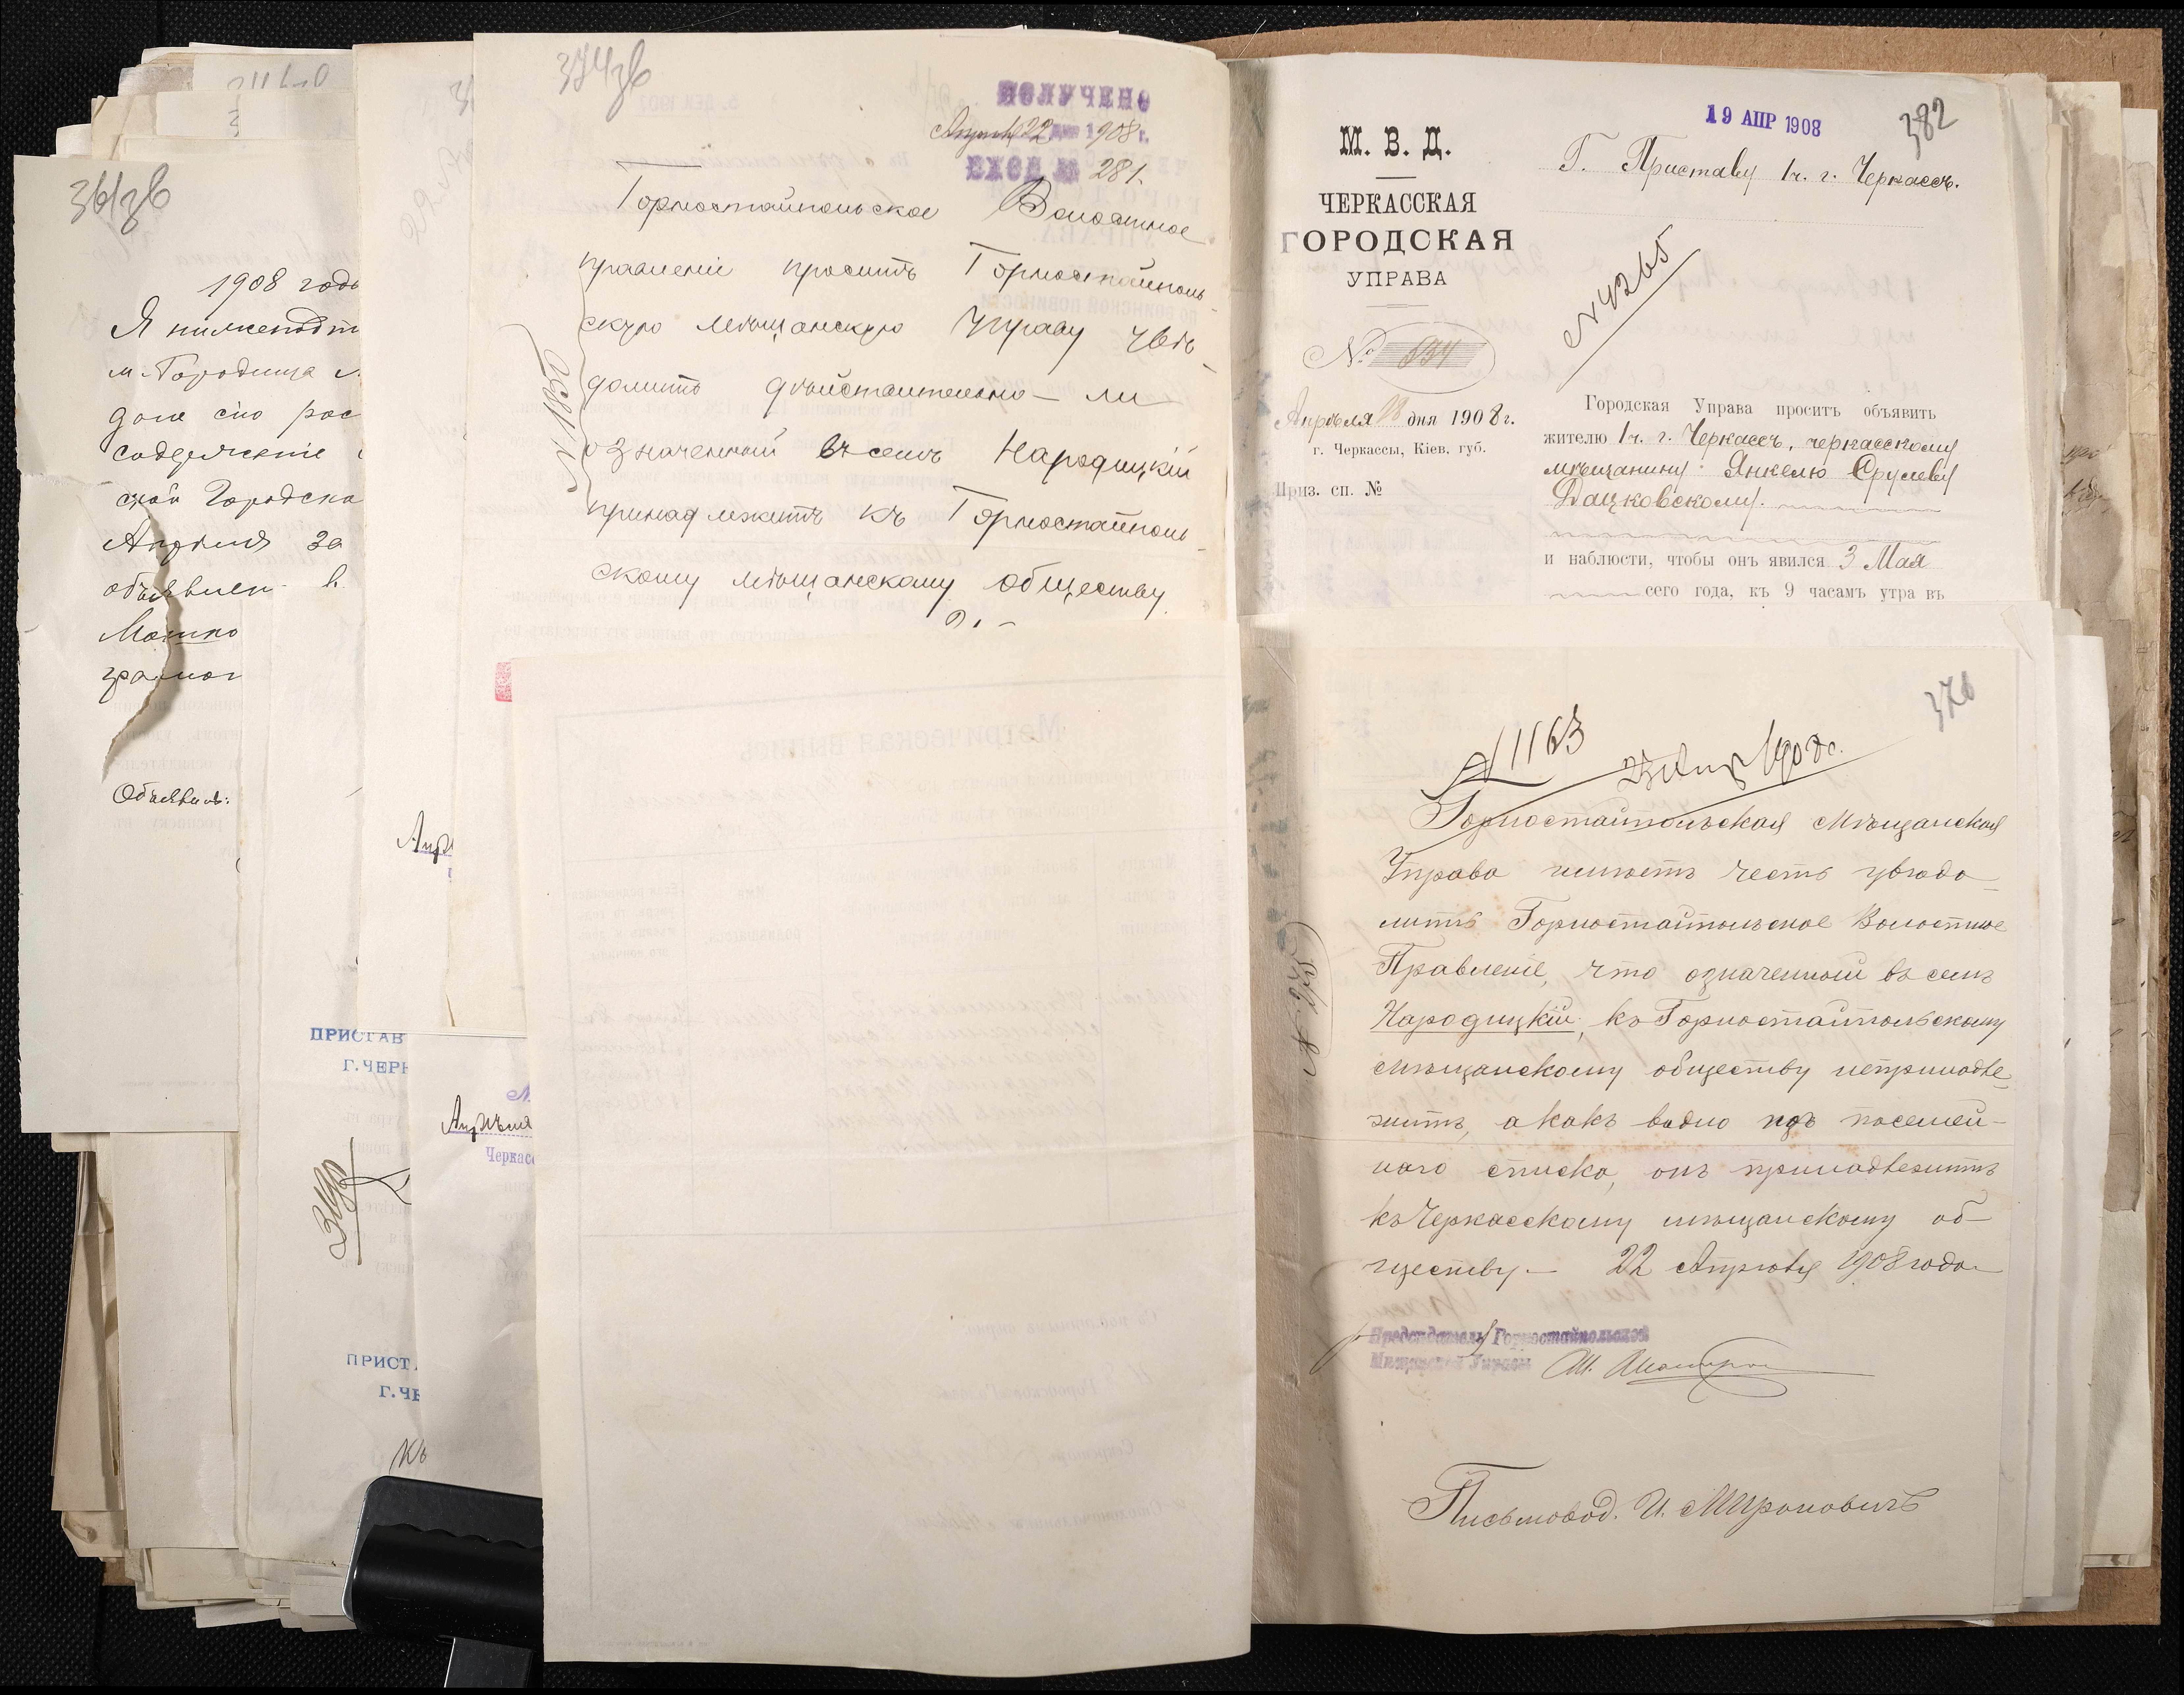 361зв
1908 года
Я нижеподп
м. Городища
дал сію рос
содержаніе
ской Городско
Апрѣля за
объявлен в
Мошко
грамот
Объявилъ:
ПРИСТАВ
Г. ЧЕРК
ПРИСТ
Г. ЧЕ
Апрѣля
Черкас
374зв
ПОЛУЧЕНО
Апрѣля 22 дня 1908 г.
ВХОД № 281.
Горностайпольское Волостное
правленіе проситъ Горностайполь
скую мѣщанскую Управу увѣ-
домить дѣйствительно-ли
означенный въ семъ Народицкій
принадлежитъ къ Горностайполь-
скому мѣщанскому обществу
19 АПР 1908
382
М. В. Д.
ЧЕРКАССКАЯ
ГОРОДСКАЯ
УПРАВА
№ 534
Апрѣля 18 дня 1908 г.
г. Черкассы, Кіев. губ.
Приз. сп. №
Г. Приставу 1 ч. г. Черкассъ.
№ 4265
Городская Управа проситъ объявить
жителю 1 ч. г. Черкассъ, черкасскому
мѣщанину Янкелю Срулеву
Дацковскому.
и наблюсти, чтобы онъ явился 3 Мая
сего года, къ 9 часамъ утра въ
376
№ 1163
23 Апр 1908 г.
Горностайпольская Мѣщанская
Управа имѣетъ честь увѣдо-
мить Горностайпольское Волостное
Правленіе, что означенный въ семъ
Народицкій, къ Горностайпольскому
мѣщанскому обществу непринадле-
житъ, а какъ видно изъ посемей-
наго списка, онъ принадлежитъ
къ Черкасскому мѣщанскому об-
ществу.— 22 Апрѣля 1908 года
№ 275
Председатель Горностайпольской
Мѣщанской Управы
Письмовод. И. Мироновичъ